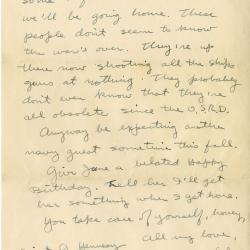 we'll be going home. These
people don't seem to know
the war's over. They're up
there now shooting all the ships
guns at nothing. They probably
don't ever know that they're
all obsolete since the O.S.R.D.
Anyway be expecting another
navy guest sometime this fall.
Give Jane a belated Happy
Birthday. Tell her I'll get
her something when I get home.
You take care of yourself, honey,
All my love,